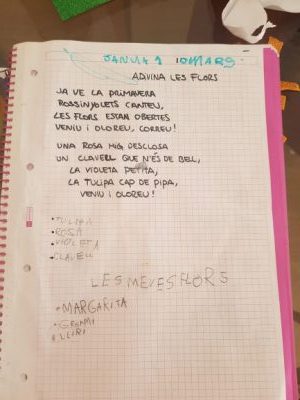 10 MARÇ
ADIVINA LES FLORS
JA VE LA PRIMAVERA
ROSSINYOLETS CANTEU,
LES FLORS ESTAN OBERTES
VENIU I OLOREU, CORREU!
UNA ROSA MIG DESCLOSA
UN CLAVELL QUE N'ÉS DE BELL,
LA VIOLETA PETITA,
LA TULIPA CAP DE PIPA,
VENIU I OLOREU!
• TULIPA
• ROSA
• VIOLETA
• CLAVELL
LES MEVES FLORS
• MARGARITA
• GERANI
• LLIRI